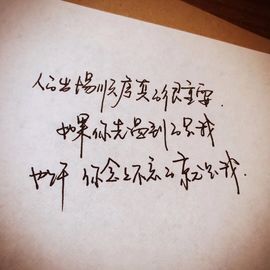 人的出场顺序真的很重要.
如果你先遇到的是我
也许 你念念不忘的就是我.